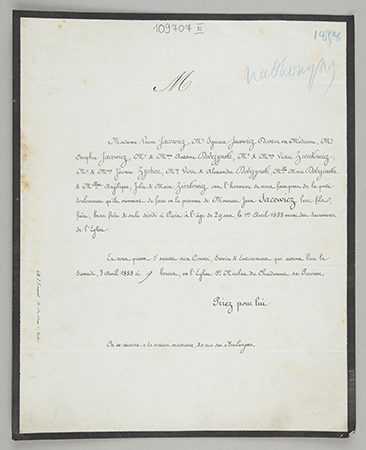 109707 III
1858
M
Madame Veuve Jacewicz, Mr. Ignace Jacewicz Docteur en Médecine, Mr.
Jacewicz, Mr. & Mme. Antoine Dobrzynski, Mr. & Mme. Victor Zienkowicz,
Mr. & Mme. Jérôme Mrs. Victor & Alexandre Dobrzynski, Melle. Marie Dobrzynski
& Melles. Angélique, Julie & Marie Zienkowicz, ont l'honneur de vous faire part de la perte
douloureuse qu'ils viennent de faire en la personne de Monsieur Jean Jacewicz leur fils,
frère, beau frère & oncle décédé à Paris à l'âge de 29 ans, le 1er Avril 1858 muni des Sacremens
de l'Église.
Ils vous prient d'assister aux Convoi, Service & Enterrement qui auront lieu le
Samedi, 3 Avril 1858 à 9 heures, en l'Église St. Nicolas du Chardonnet sa Paroisse.
Priez pour lui.
On se réunira à la maison mortuaire, rue des Boulangers.